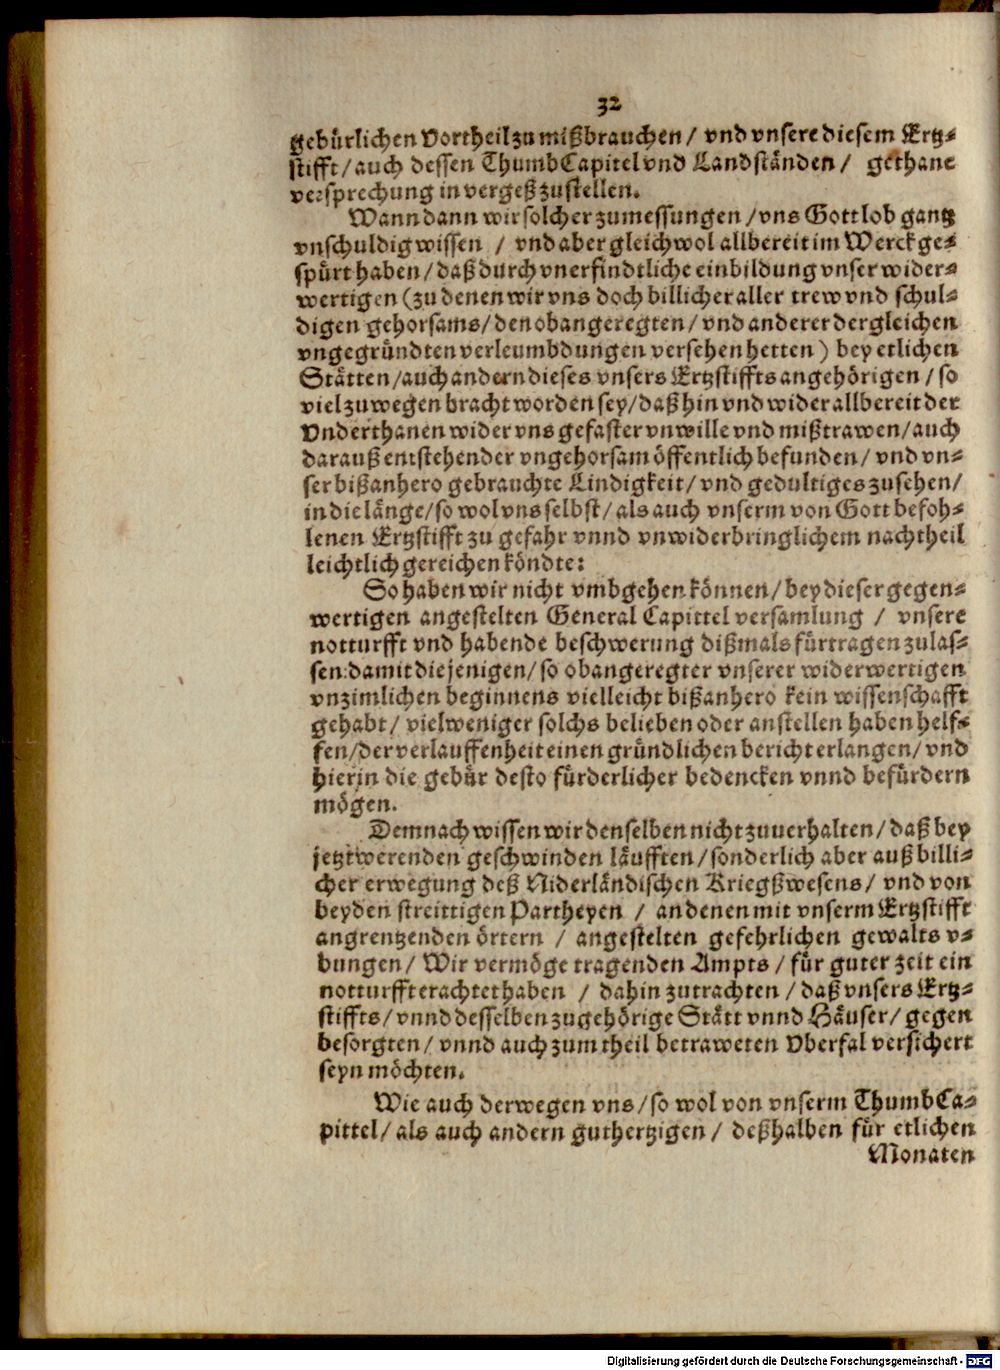 32
gebürlichen Vortheil zu mißbrauchen / vnd vnsere diesem Ertz-
stifft / auch dessen ThumbCapitel vnd Landständen / gethane
versprechung in vergeß zustellen.
Wann dann wir solcher zumessungen / vns Gott lob gantz
vnschuldig wissen / vnd aber gleichwol allbereit im Werck ge-
spürt haben / daß durch vnerfindtliche einbildung vnser wider-
wertigen (zu denen wir vns doch billicher aller trew vnd schul-
digen gehorsams / den obangeregten / vnd anderer dergleichen
vngegründten verleumbdungen versehen hetten) bey etlichen
Stätten / auch andern dieses vnsers Ertzstiffts angehörigen / so
viel zu wegen bracht worden sey / daß hin vnd wider allbereit der
Vnderthanen wider vns gefaster vnwille vnd mißtrawen / auch
darauß entstehender vngehorsam öffentlich befunden / vnd vn-
ser bißanhero gebrauchte Lindigkeit / vnd gedultiges zusehen /
in die länge / so wol vns selbst / als auch vnserm von Gott befoh-
lenen Ertzstifft zu gefahr vnnd vnwiderbringlichem nachtheil
leichtlich gereichen köndte:
So haben wir nicht vmbgehen können / bey dieser gegen-
wertigen angestelten General Capittel versamlung / vnsere
notturfft vnd habende beschwerung dißmals fürtragen zulas-
sen: damit die jenigen / so obangeregter vnserer widerwertigen
vnzimlichen beginnens vielleicht bißanhero kein wissenschafft
gehabt / vielweniger solchs belieben oder anstellen haben helf-
fen / der verlauffenheit einen gründlichen bericht erlangen / vnd
hierin die gebür desto fürderlicher bedencken vnnd befürdern
mögen.
Demnach wissen wir denselben nicht zuuerhalten / daß bey
jetztwerenden geschwinden läufften / sonderlich aber auß billi-
cher erwegung deß Niderländischen Kriegßwesens / vnd von
beyden streittigen Partheyen / an denen mit vnserm Ertzstifft
angrentzenden örtern / angestelten gefehrlichen gewalts v-
bungen / Wir vermöge tragenden Ampts / für guter zeit ein
notturfft erachtet haben / dahin zutrachten / daß vnsers Ertz-
stiffts / vnnd desselben zugehörige Stätt vnnd Häuser / gegen
besorgten / vnnd auch zum theil betraweten Vberfal versichert
seyn möchten.
Wie auch derwegen vns / so wol von vnserm ThumbCa-
pittel / als auch andern guthertzigen / deßhalben für etlichen
Monaten
Digitalisierung gefördert durch die Deutsche Forschungsgemeinschaft - DFG